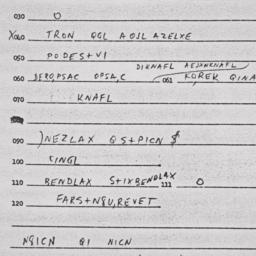 030 O
X040 TRON QGL AOJL AZELXE
050 PODES+VI
DIKNAFL AEJXNKNAFL
060 061 KOREK QINA
070 KNAFL
090 )NEZLAX QS+PICN $
100 CINGL
110 BENDLAX S+IXBENDLAX 111 O
120 FARS+NGU,REVET
NGICN GI NICN